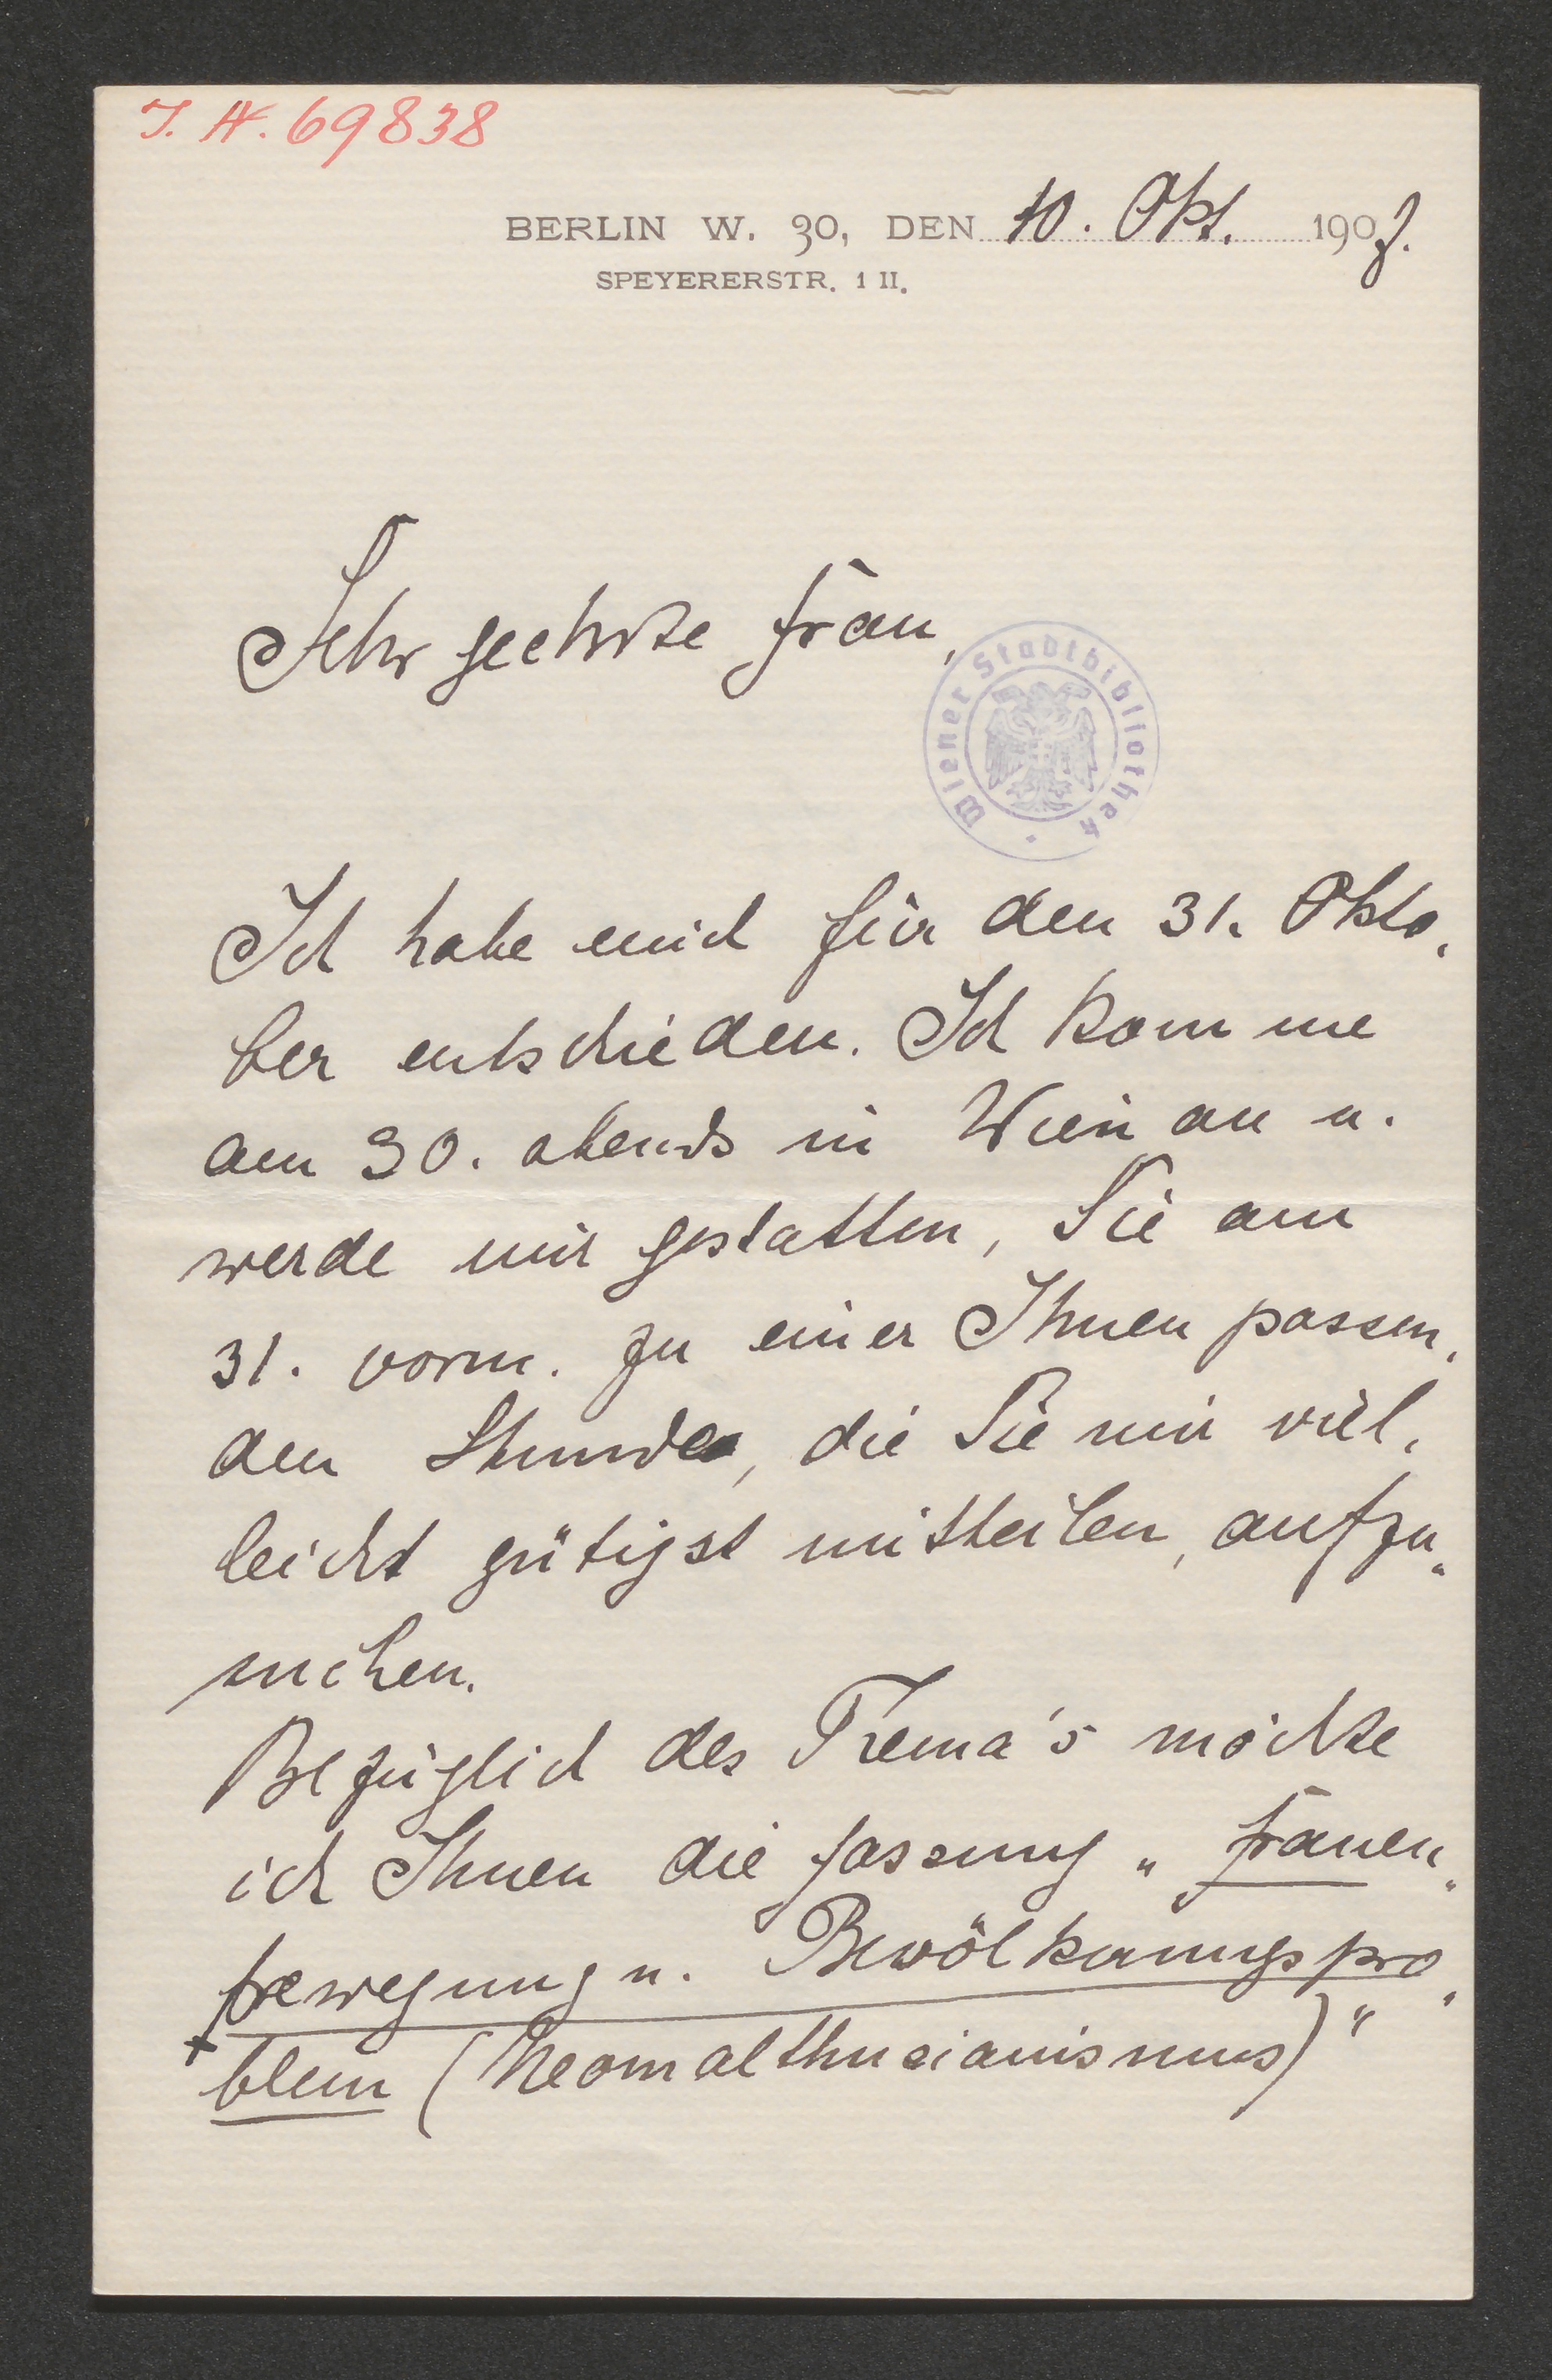 J. N. 69838
BERLIN W. 30, DEN 10. Okt. 1907.
SPEYERERSTR. 1 II.
Sehr geehrte Frau,
Wiener Stadtbibliothek
Ich habe mich für den 31. Okto-
ber entschieden. Ich komme
am 30. abends in Wien an u.
werde mir gestatten, Sie am
31. vorm. zu einer Ihnen passen-
den Stunde, die Sie mir viel-
leicht gütigst mitteilen, aufzu-
suchen.
Bezüglich des Thema's möchte
ich Ihnen die Fassung „Frauen-
bewegung u. Bevölkerungspro-
blem (Neomalthusianismus)"